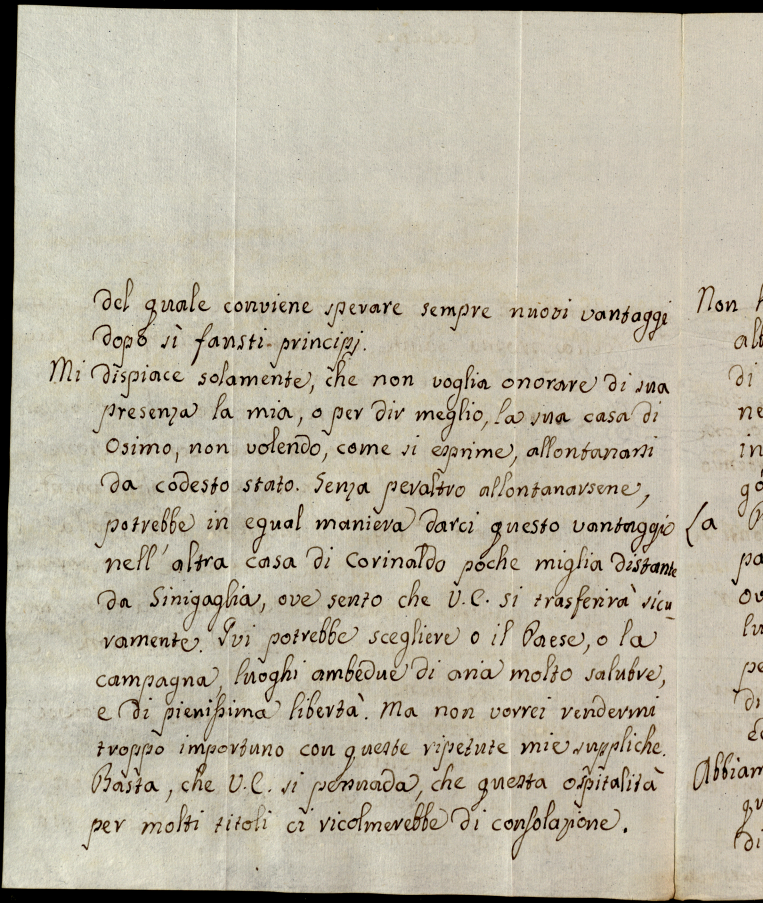 del quale conviene sperare sempre nuovi vantaggi
dopo sì fausti principj.
Mi dispiace solamente, che non voglia onorare di sua
presenza la mia, o per dir meglio, la sua casa di
Osimo, non volendo, come si esprime, allontanarsi
da codesto stato. Senza peraltro allontanarsene,
potrebbe in egual maniera darci questo vantaggio
nell' altra casa di Corinaldo poche miglia distante
da Sinigaglia, ove sento che V.C. si trasferirà sicu
ramente. Ivi potrebbe scegliere o il Paese, o la
campagna, luoghi ambedue di aria molto salubre,
e di pienissima libertà. Ma non vorrei rendermi
troppo importuno con queste ripetute mie suppliche.
Basta, che V.C. si persuada, che questa ospitalità
per molti titoli ci ricolmerebbe di consolazione.
Non
di
La
Abbiam
di